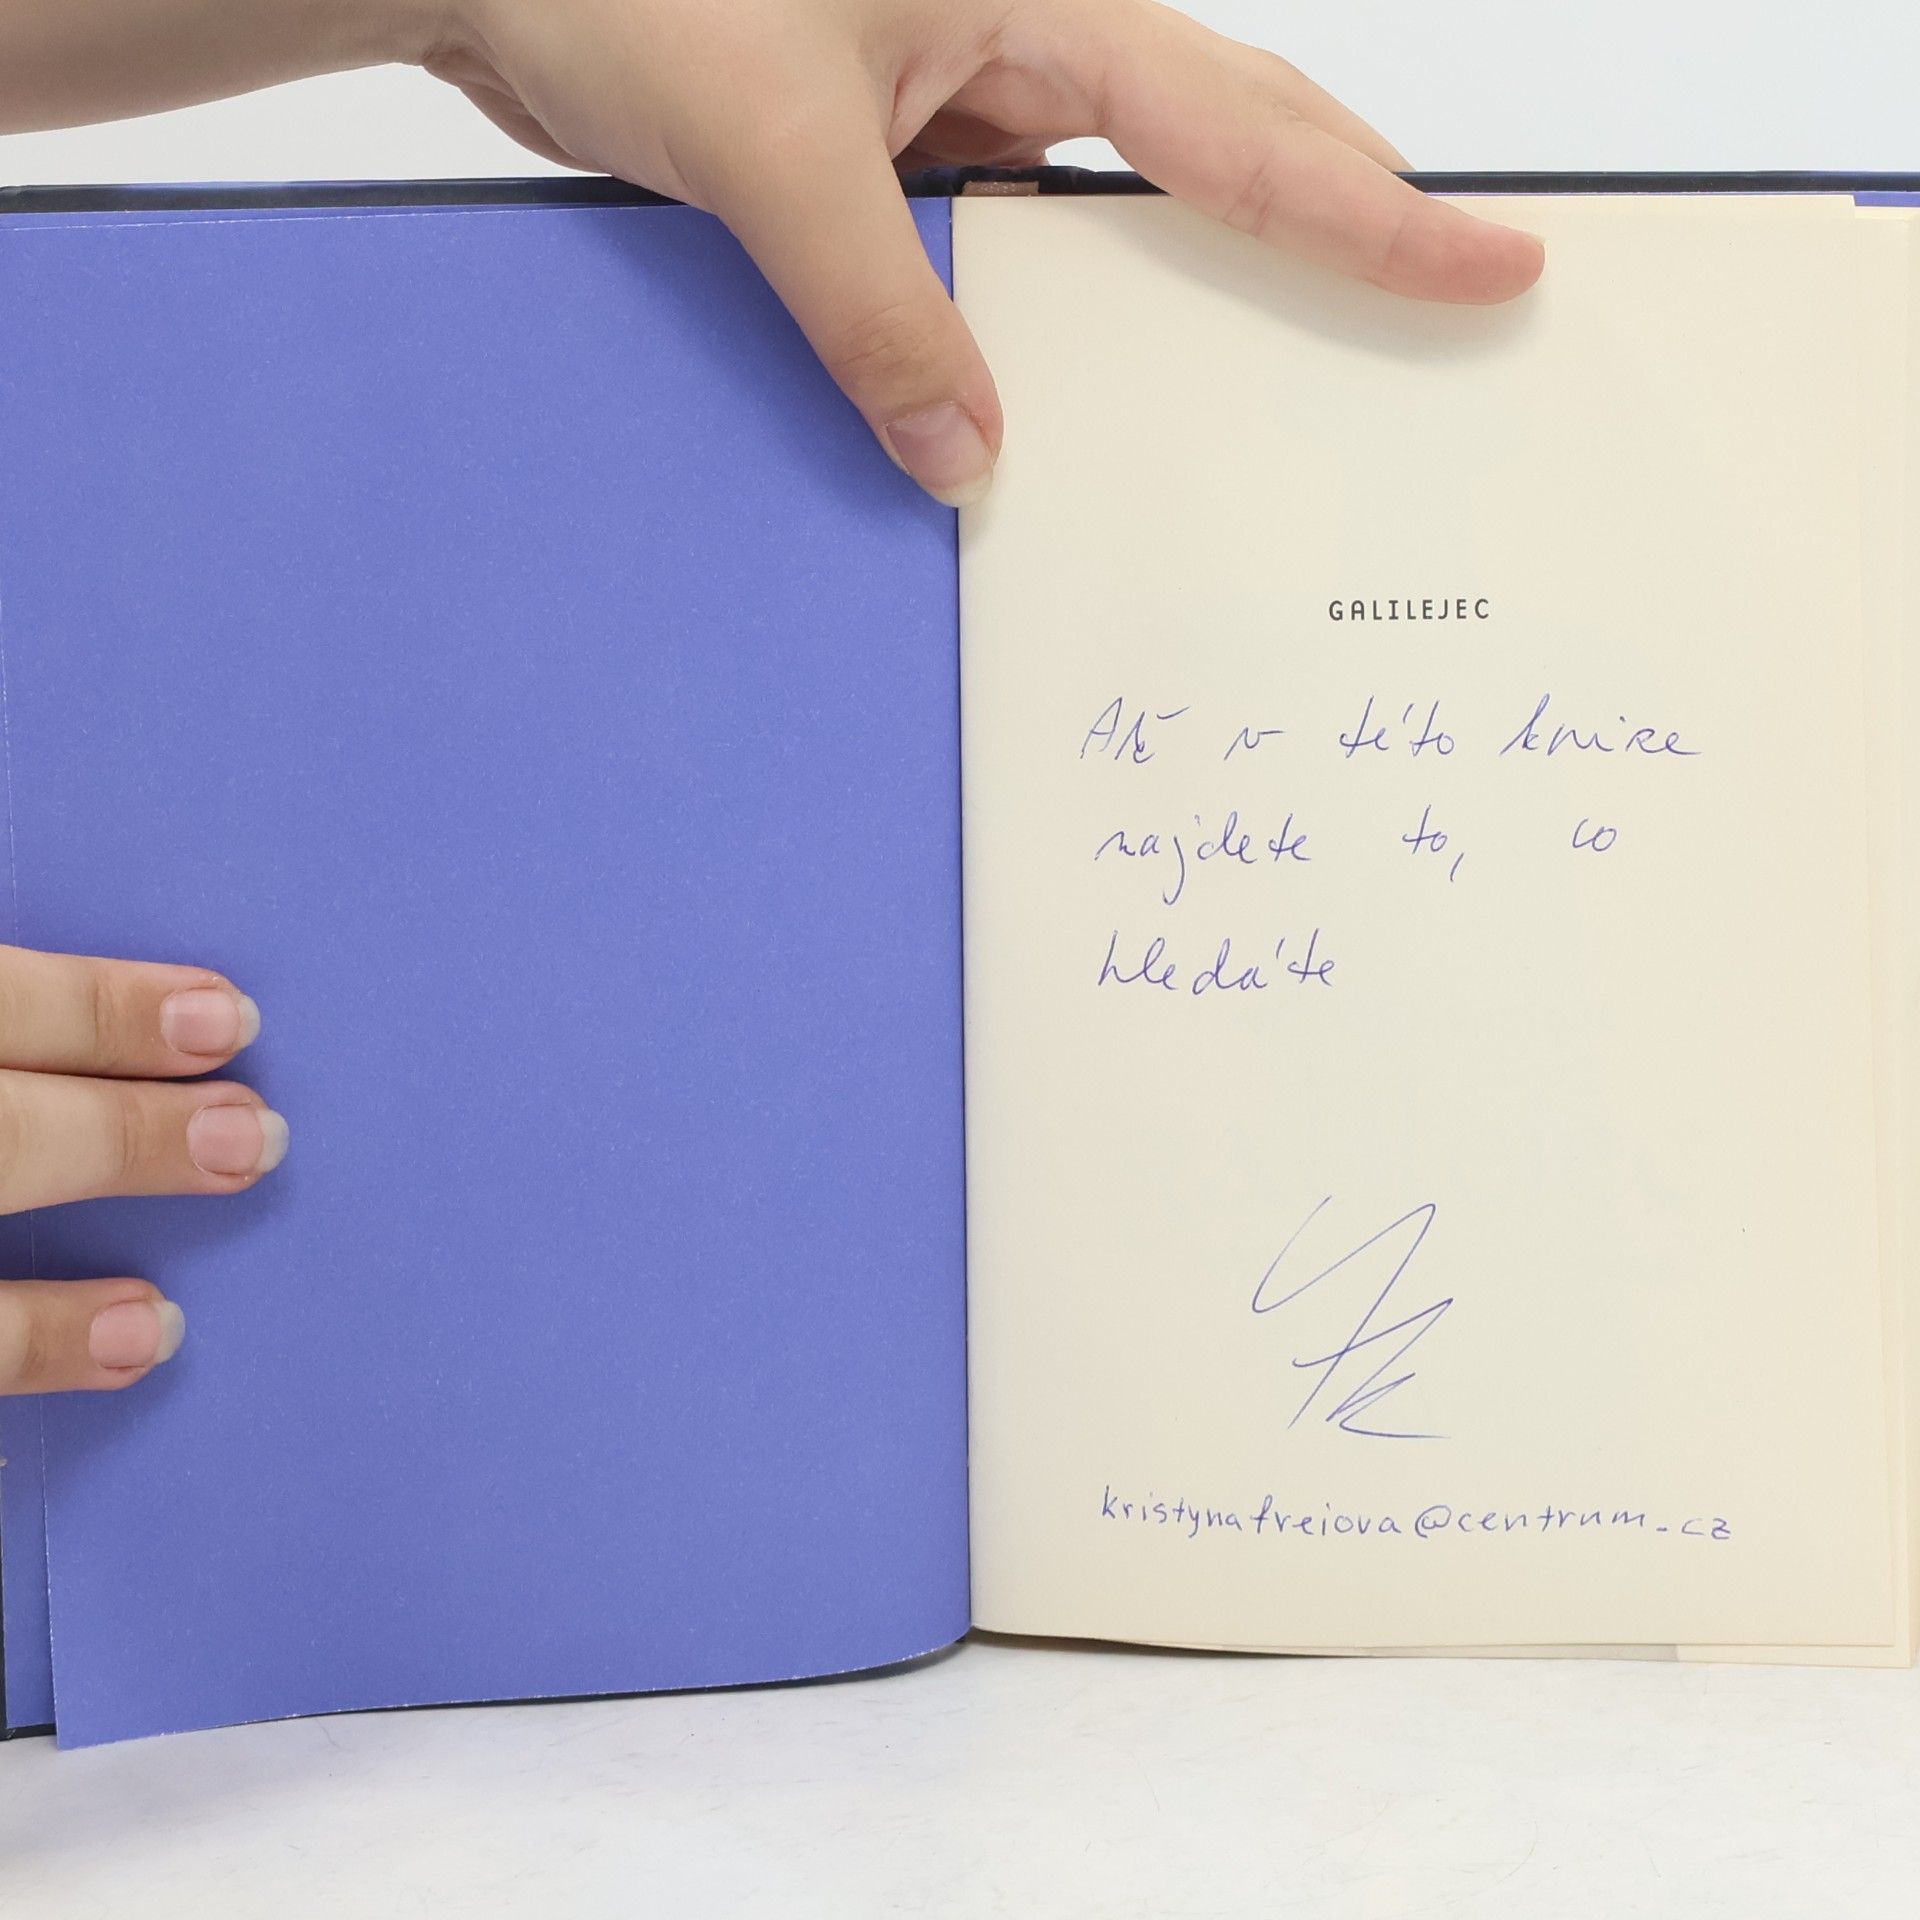 GALILEJEC
Ať v této knize
najdete to, co
hledáte
kristynafreiova@centrum.cz